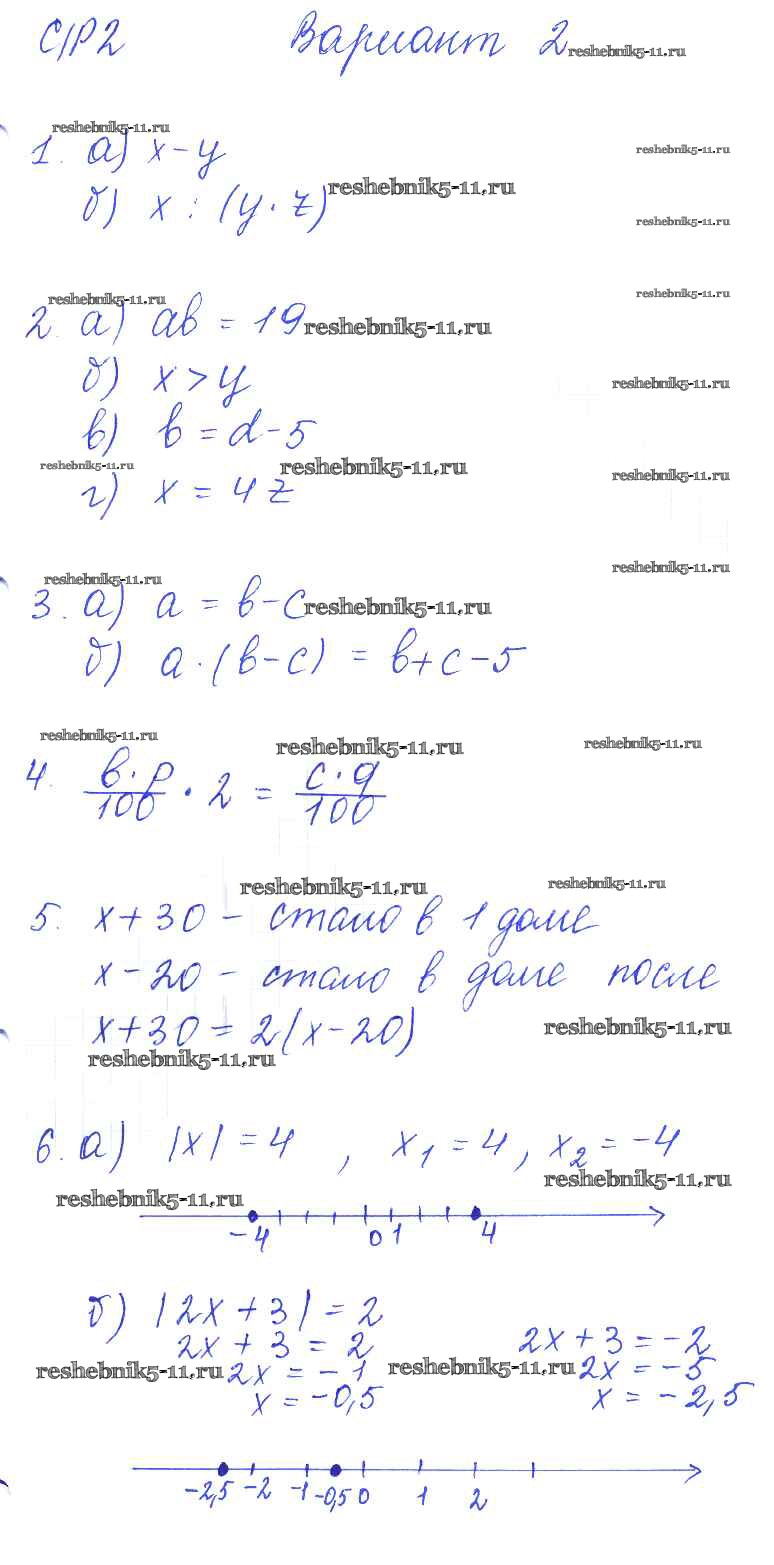 С/Р2 Вариант 2 reshebnik5-11.ru
reshebnik5-11.ru
1. а) x - y reshebnik5-11.ru
reshebnik5-11.ru
б) x : (y · z) reshebnik5-11.ru
reshebnik5-11.ru reshebnik5-11.ru
2. а) ab = 19 reshebnik5-11.ru
б) x > y reshebnik5-11.ru
в) b = d - 5
reshebnik5-11.ru reshebnik5-11.ru reshebnik5-11.ru
г) x = 4z
reshebnik5-11.ru reshebnik5-11.ru
3. а) a = b - c reshebnik5-11.ru
б) a · (b - c) = b + c - 5
reshebnik5-11.ru reshebnik5-11.ru reshebnik5-11.ru
4. b · p / 100 · 2 = c · q / 100
reshebnik5-11.ru reshebnik5-11.ru
5. x + 30 - стало в 1 доме
x - 20 - стало в доме после
x + 30 = 2(x - 20) reshebnik5-11.ru
reshebnik5-11.ru
6. а) |x| = 4 , x1 = 4, x2 = -4
reshebnik5-11.ru reshebnik5-11.ru
-4 0 1 4
б) |2x + 3| = 2
2x + 3 = 2 2x + 3 = -2
reshebnik5-11.ru 2x = -1 reshebnik5-11.ru 2x = -5
x = -0,5 x = -2,5
-2,5 -2 -1 -0,5 0 1 2